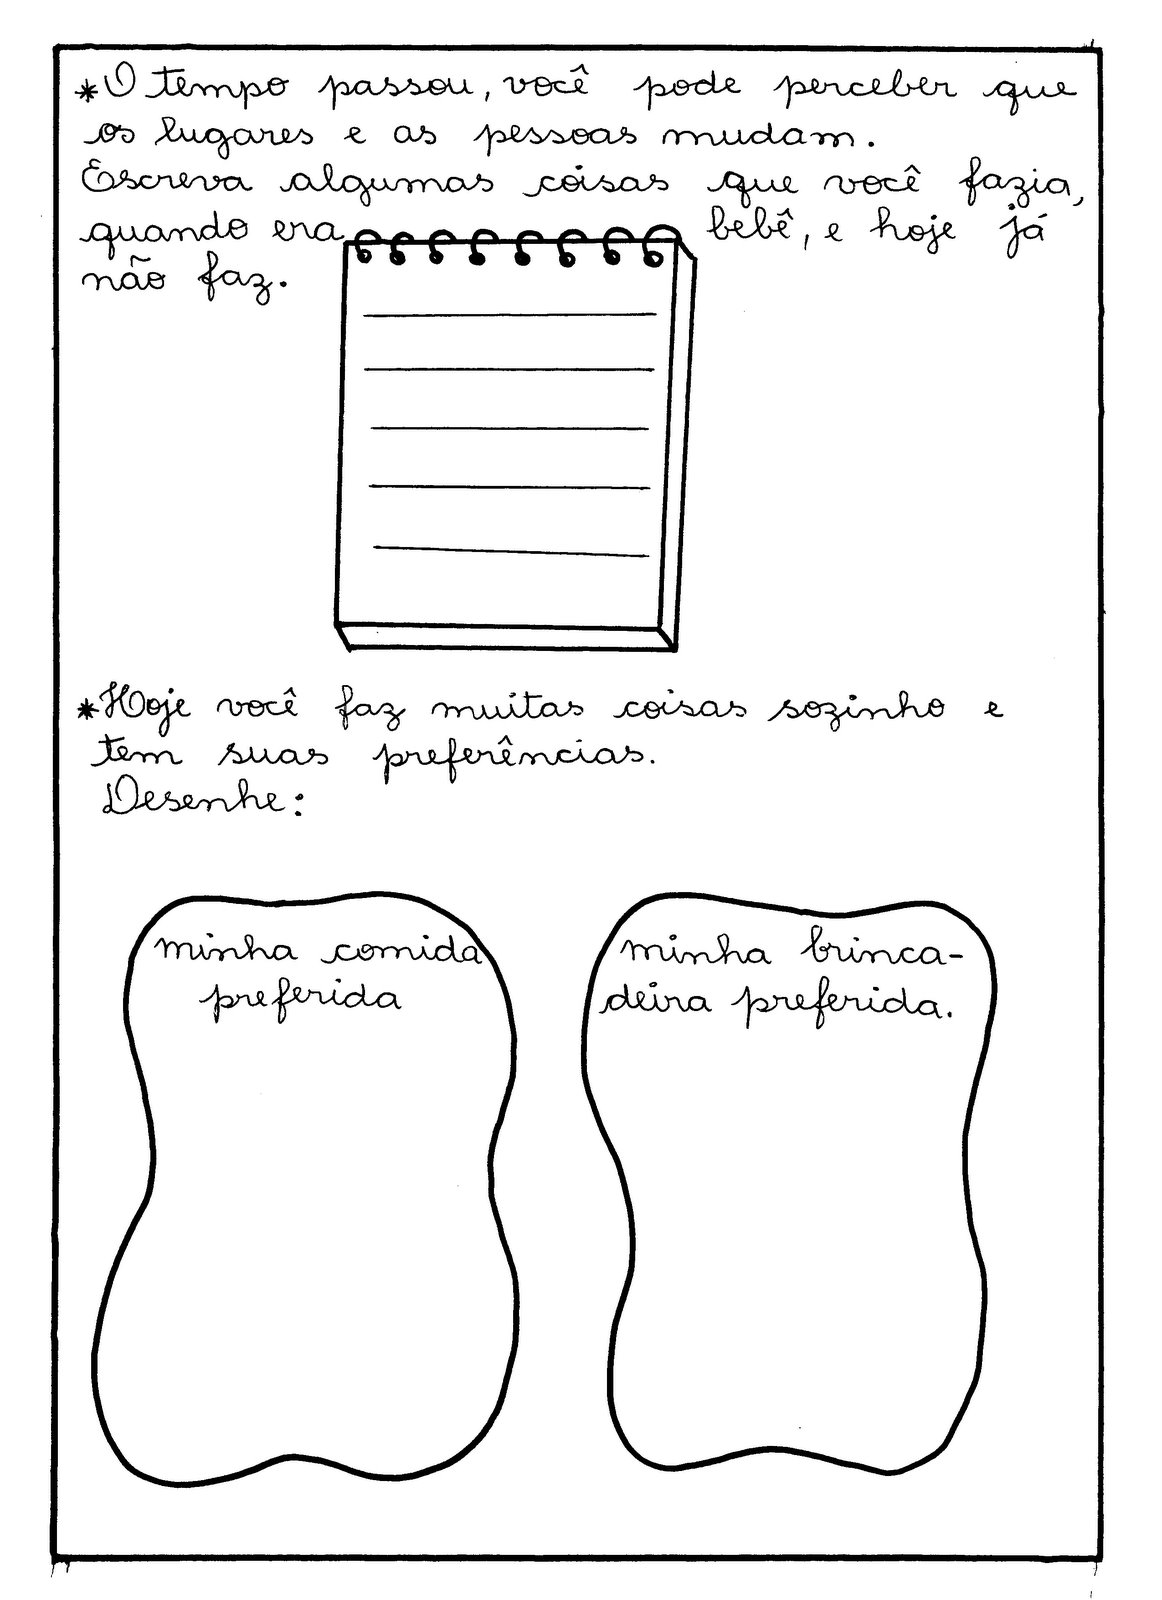 *O tempo passou, você pode perceber que
os lugares e as pessoas mudam.
Escreva algumas coisas que você fazia,
quando era bebê, e hoje já
não faz.
*Hoje você faz muitas coisas sozinho e
tem suas preferências.
Desenhe:
minha comida
preferida
minha brinca-
deira preferida.